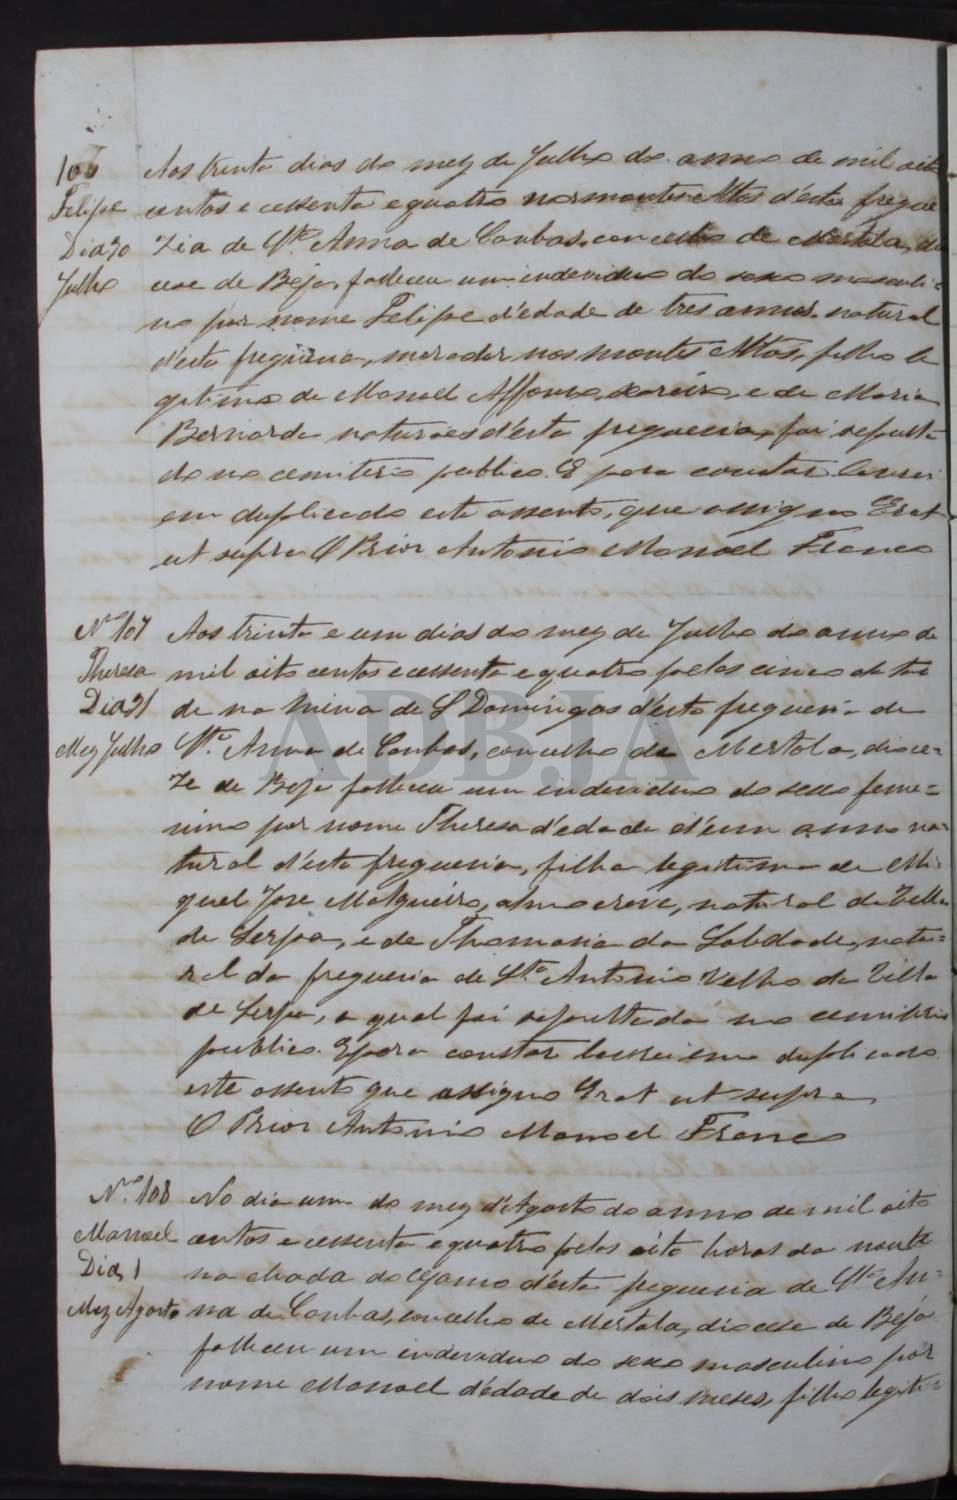 106
Felipe
Dia 30
Julho
Aos trinta dias do mez de Julho do anno de mil oito
centos e cessenta e quatro nos montes Altos d'esta fregue
zia de Stª Anna de Cambas, concelho de Mertola, di
ocese de Beja, falleceu um endeviduo do sexo masculi=
no por nome Felipe d'edade de tres annos, natural
d'esta freguezia, morador nos montes Altos, filho le
gitimo de Manoel Affonso, e de Maria
Bernarda naturaes d'esta freguezia, foi sepulta
do no cemiterio publico. E para constar lavrei
em duplicado este assento, que assigno Erat
ut supra O Prior Antonio Manoel Franco
Nº 107
Theresa
Dia 31
Mez Julho
Aos trinta e um dias do mez de Julho do anno de
mil oito centos e cessenta e quatro pelas cinco da tar
de na Mina de S Domingos d'esta freguezia de
Stª Anna de Cambas, concelho de Mertola, dioce=
ze de Beja falleceu um endeviduo do sexo feme=
nino por nome Theresa d'edade d'um anno na=
tural d'esta freguezia, filha legitima de Mi
guel Jose Malgueiro, almocreve, natural da Villa
de Serpa, e de Thomasia da Soledade, natu=
ral da freguezia de Stº Antonio Velho da Villa
de Serpa, a qual foi sepultada no cemiterio
publico. E para constar lavrei em duplicado
este assento que assigno Erat ut supra
O Prior Antonio Manoel Franco
Nº 108
Manoel
Dia 1
Mez Agosto
No dia um do mez d'Agosto do anno de mil oito
centos e cessenta e quatro pelas oito horas da noute
na d'esta freguezia de Stª An=
na de Cambas, concelho de Mertola, diocese de Beja
falleceu um endeviduo do sexo masculino por
nome Manoel d'edade de dois meses, filho legiti=
ADBJA